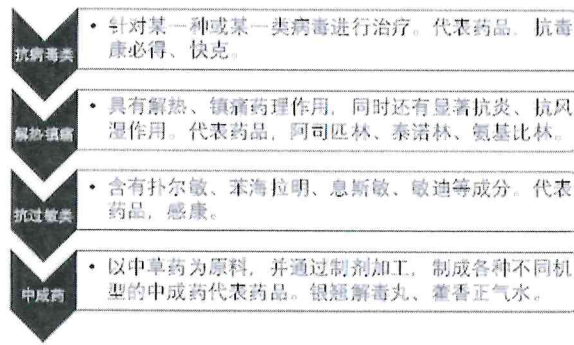 抗病毒类
• 针对某一种或某一类病毒进行治疗。代表药品，抗毒
康必得、快克。
解热镇痛
• 具有解热、镇痛药理作用，同时还有显著抗炎、抗风
湿作用。代表药品，阿司匹林、泰诺林、氨基比林。
抗过敏类
• 含有扑尔敏、苯海拉明、息斯敏、敏迪等成分。代表
药品，感康。
中成药
• 以中草药为原料，并通过制剂加工，制成各种不同机
型的中成药代表药品。银翘解毒丸、藿香正气水。